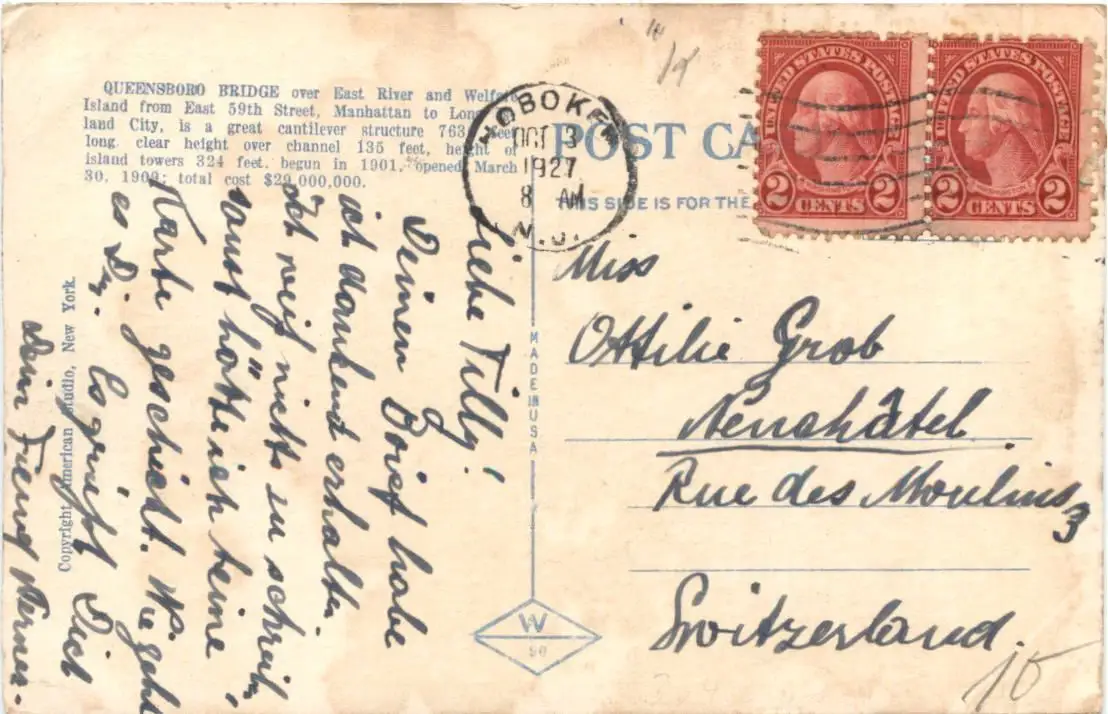 QUEENSBORO BRIDGE over East River and Welfare
Island from East 59th Street, Manhattan to Long
land City, is a great cantilever structure 763 feet
long, clear height over channel 135 feet, height of
island towers 324 feet. begun in 1901, opened March
30, 1909; total cost $29,000,000.
Copyright American Studio, New York.
HOBOKEN
OCT 3
1927
8 AM
N.J.
POST CA
THIS SIDE IS FOR THE
UNITED STATES POSTAGE
2 CENTS 2
UNITED STATES POSTAGE
2 CENTS 2
MADE IN USA
W
90
Liebe Tilly!
Deinen Brief habe
ich dankend erhalten.
Ich weiß nichts zu schreiben,
sonst hätte ich keine
Karte geschickt. Wie geht
es Dir. Es grüßt Dich
Dein Freund Werner.
Miss
Ottilie Grob
Neuchâtel
Rue des Moulins
3
Switzerland.
10